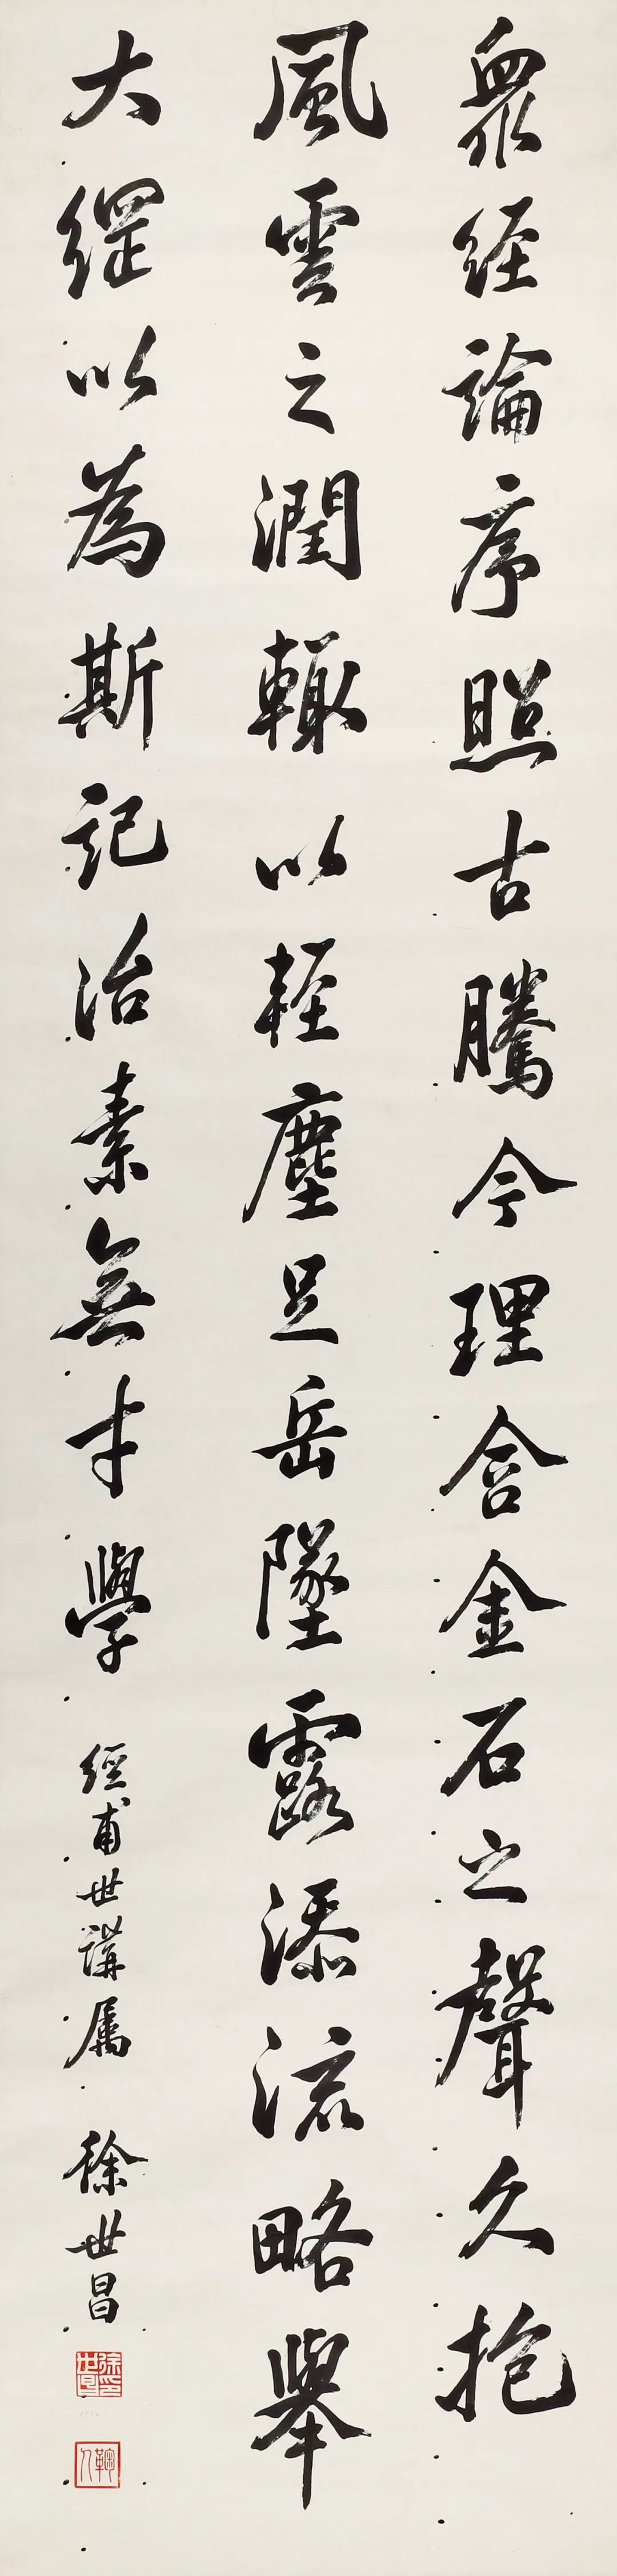 衆経論序照古騰今理含金石之聲久抱
風雲之潤輙以輕塵足岳墜露添流略舉
大綱以為斯記治素無才學
經甫世講属 徐世昌
徐世昌印
鞠人